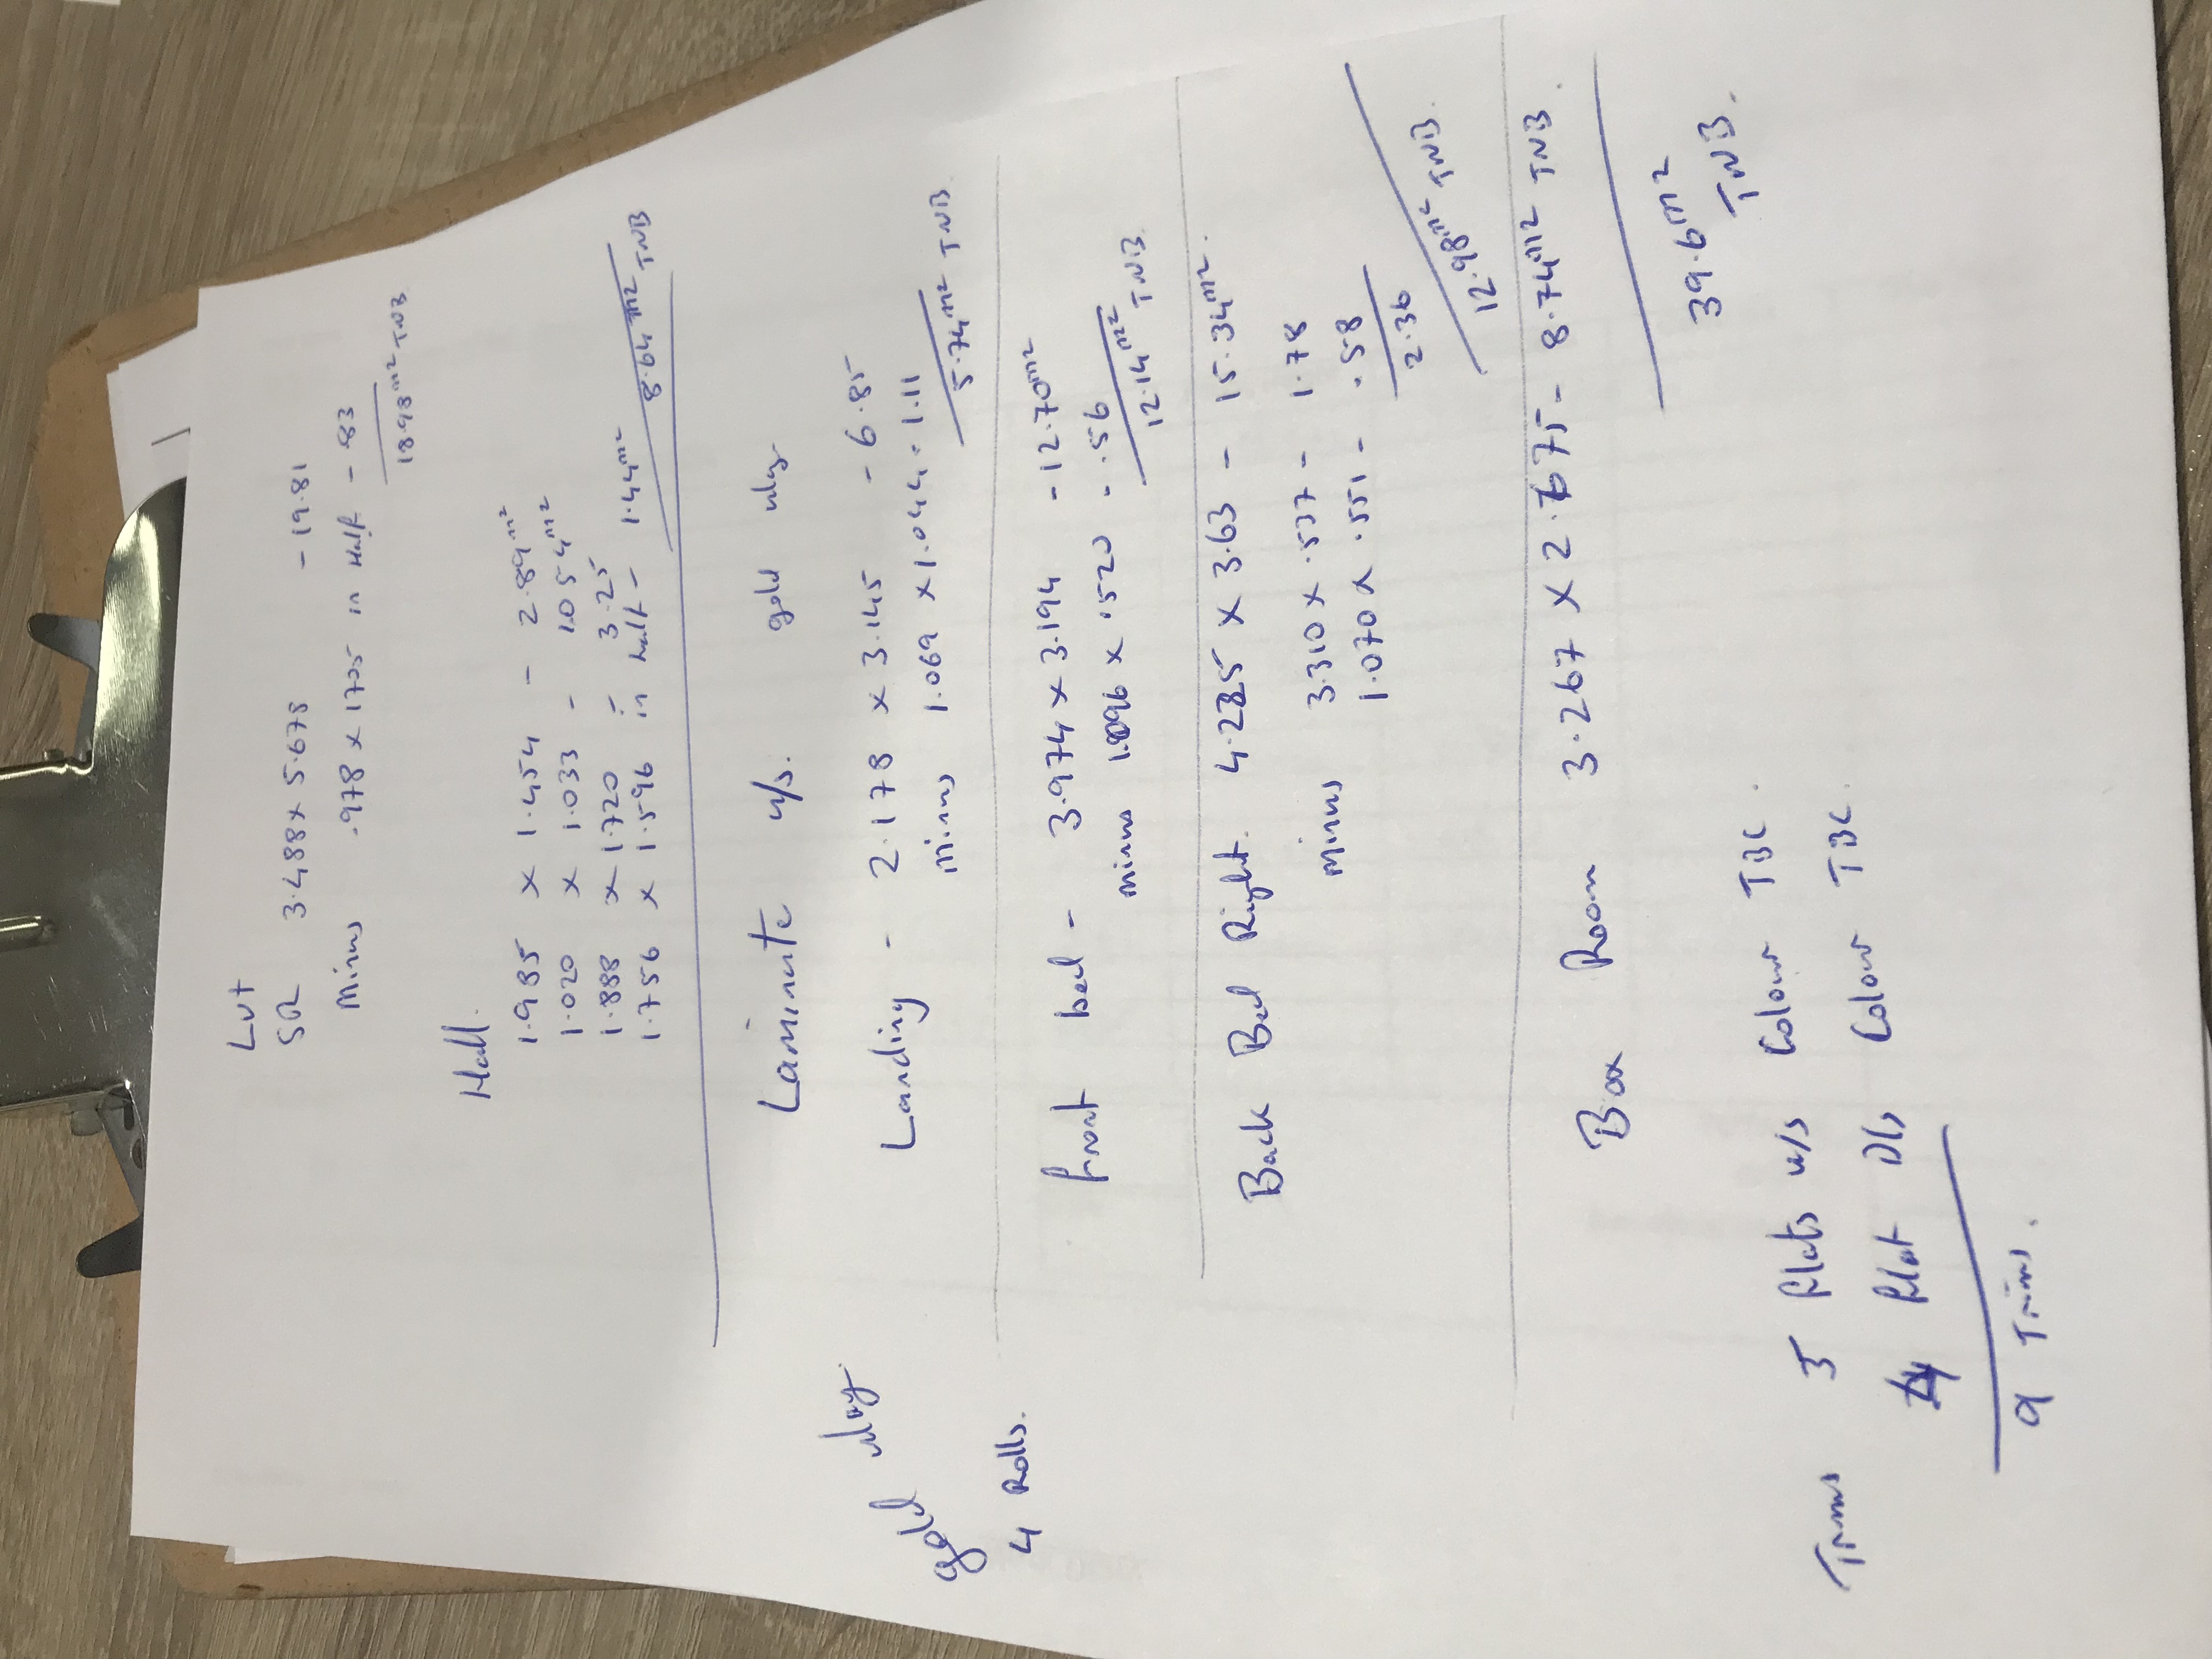 Lvt
SR 3.488 x 5.678 - 19.81
Minus .978 x 1705 in Half - 83
18.98m² TNB
Hall.
1.985 x 1.454 - 2.89m²
1.020 x 1.033 - 1054m²
1.888 x 1720 = 3.25
1.756 x 1.596 in half - 1.44m²
8.64m² TNB
Laminate u/s. gold ulay
Landing - 2.178 x 3.145 - 6.85
minus 1.069 x 1.044 - 1.11
5.74m² TNB
gold ulay
4 Rolls.
front bed - 3.974 x 3.194 - 12.70m²
minus 1.096 x .520 - .56
12.14m² TNB
Back Bed Right. 4.225 x 3.63 - 15.34m².
minus 3.310 x .537 - 1.78
1.070 x .551 - .58
2.36
12.98m² TNB.
Box Room 3.267 x 2.675 - 8.74m² TNB.
39.6m²
TNB.
Trims 5 flats u/s Colour TBC.
4 flat D/s Colour TBC.
9 Trims.